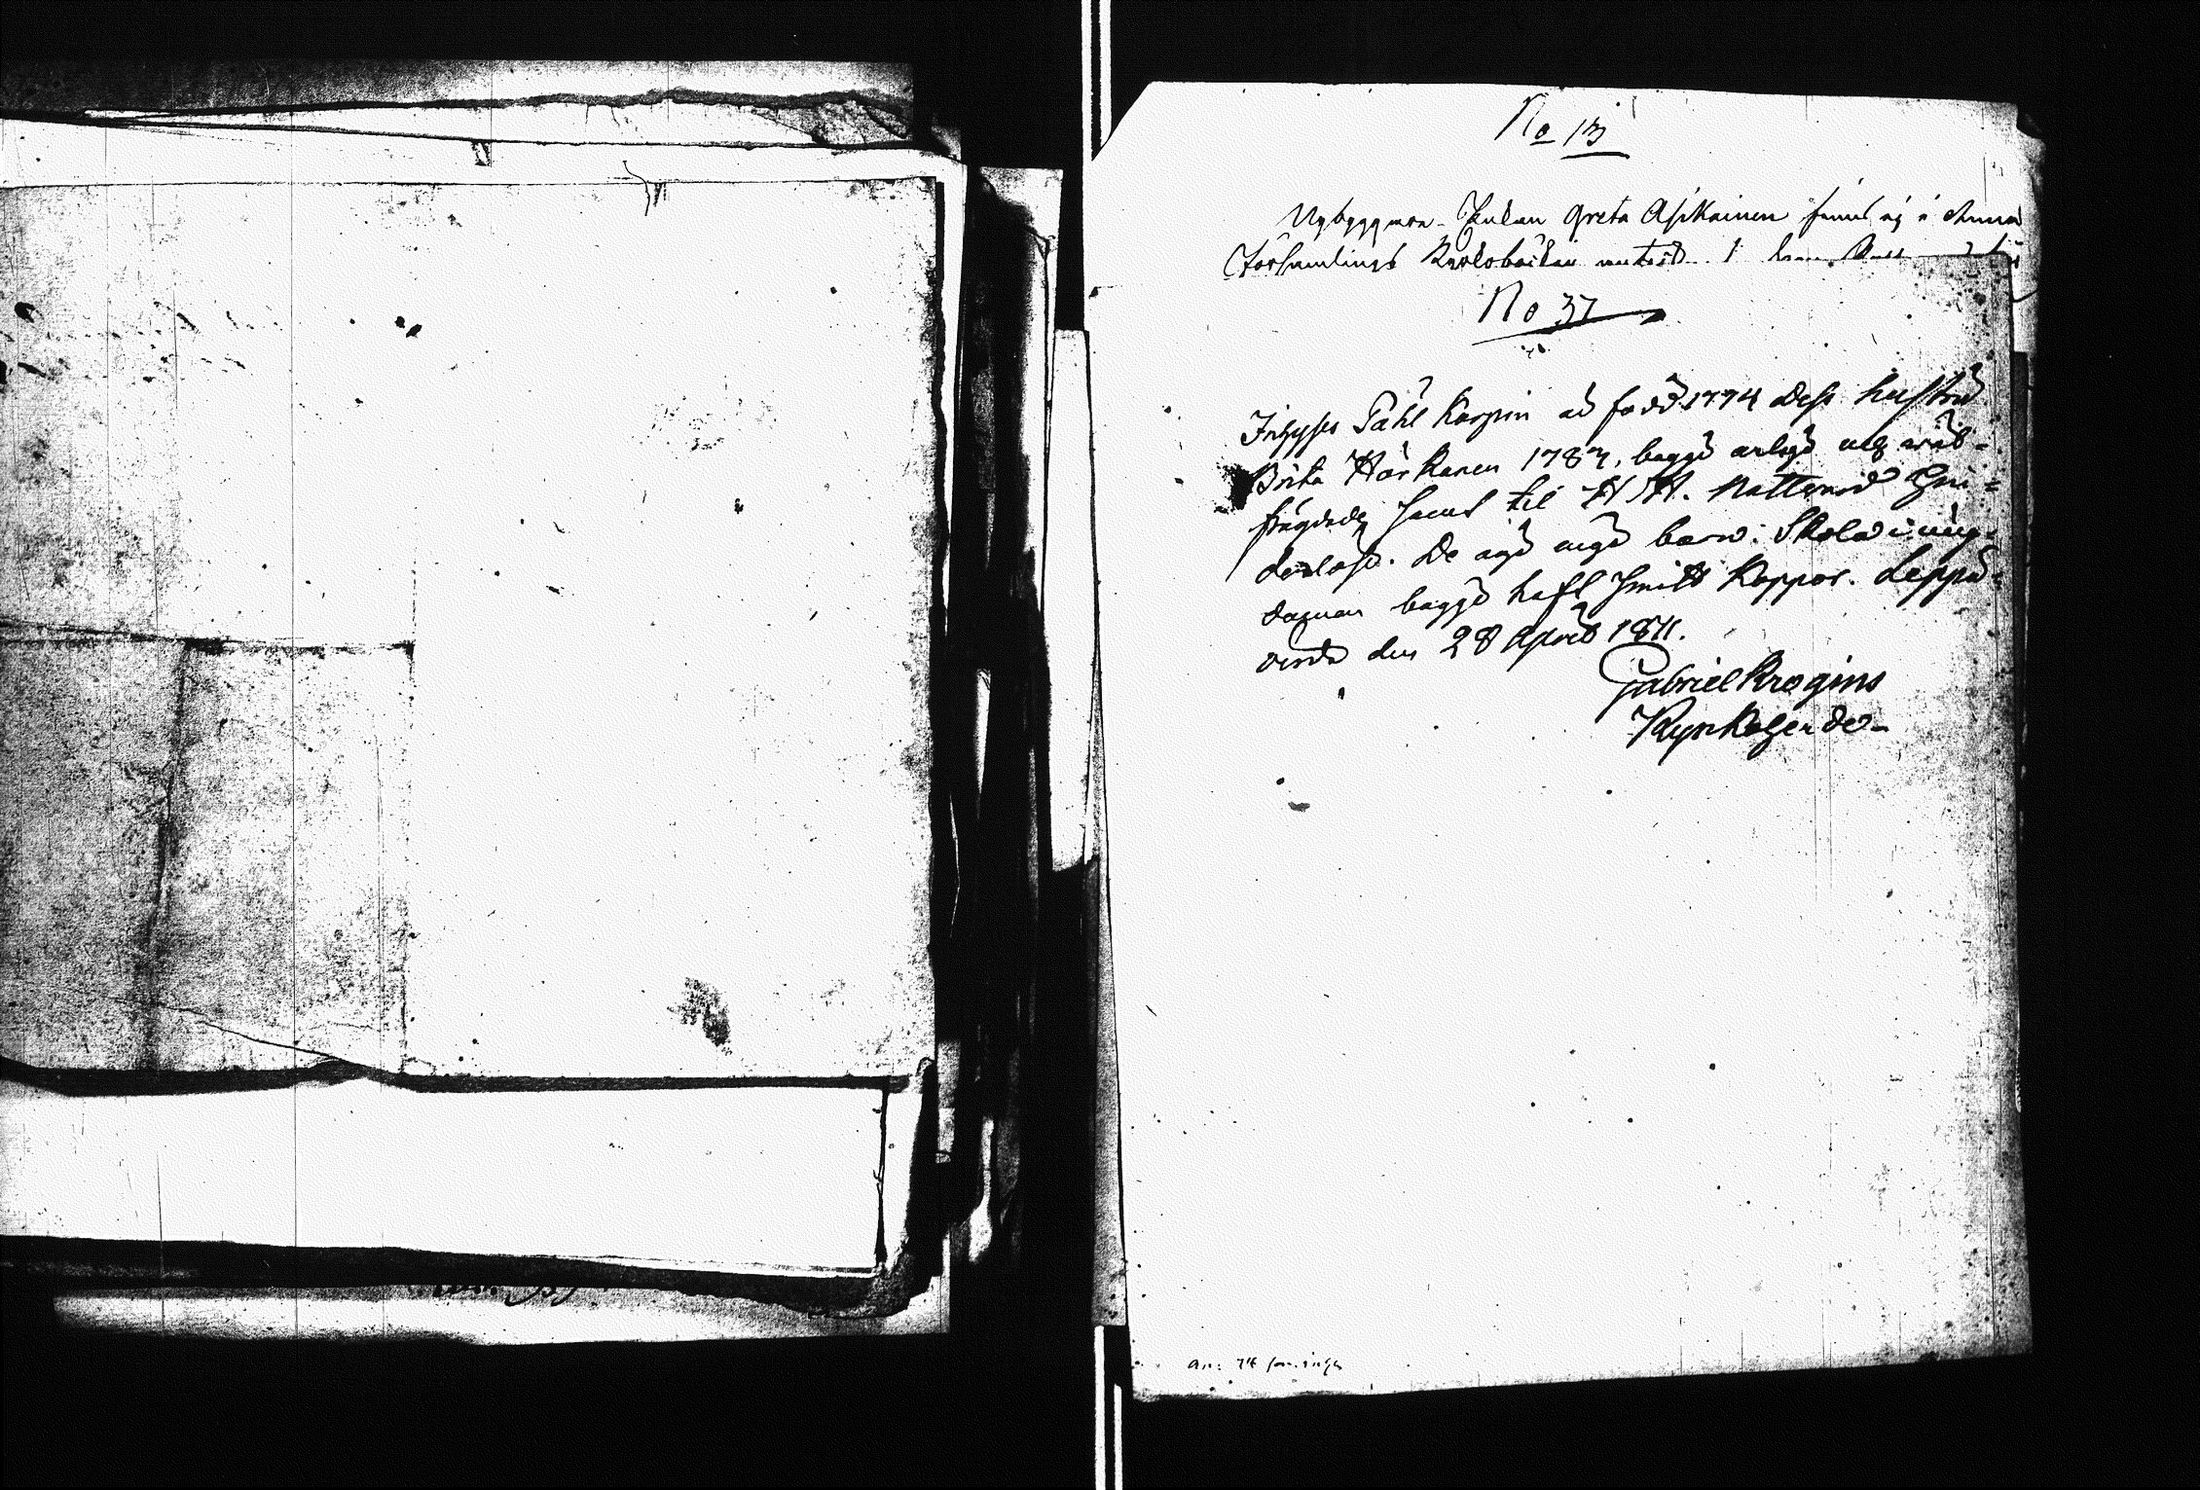 No 13
Nybyggaren Enkan Greta Asikainen finns ej i denna
Församlings Kyrkoböcker
No 37
Inhyses Påhl Karpin är född 1774 Dess hustru
Brita Härkönen 1783, bägge ärligt och
frägdade samt til H. H. Nattvard hin-
derlöse. De äga inga barn. Skola i ung-
domen bägge haft Smitt Koppor. Leppä-
virda den 28 April 1811.
Gabriel Krogius
Kyrkoherde